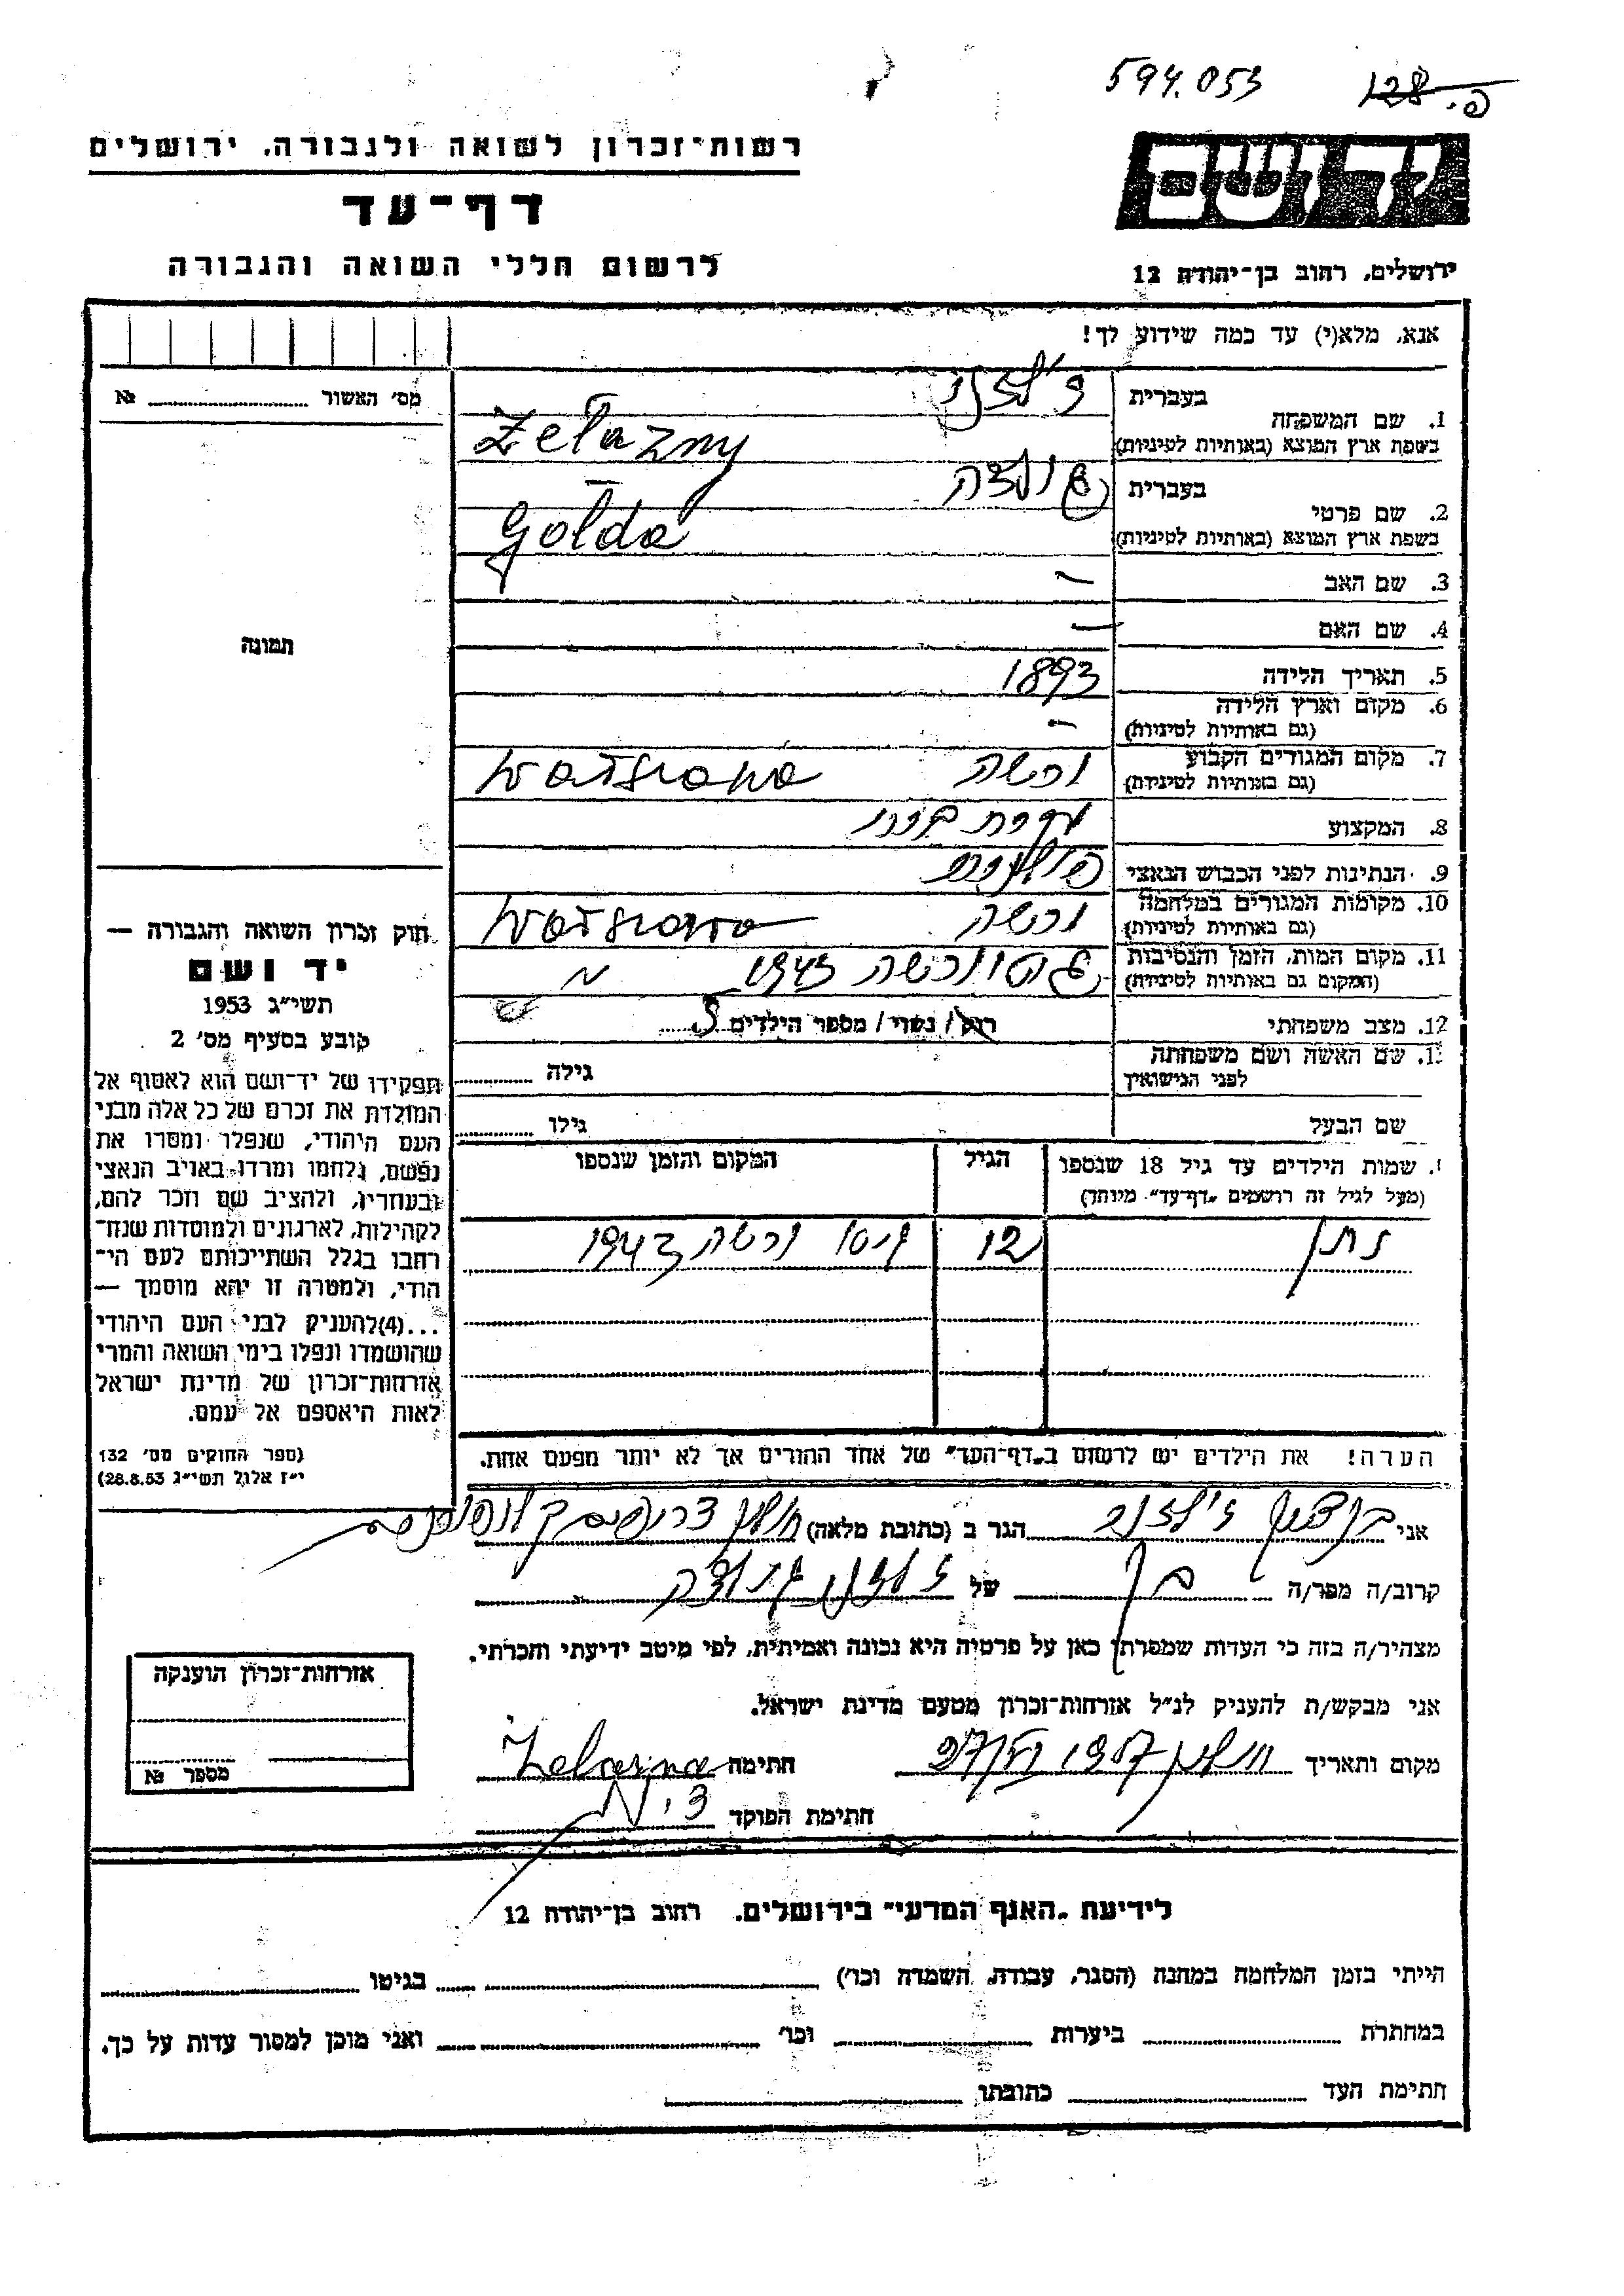 594.053
פ. 128
יד ושם
רשות־זכרון לשואה ולגבורה, ירושלים
דף־עד
לרשום חללי השואה והגבורה
ירושלים, רחוב בן־יהודה 12
אנא, מלא(י) עד כמה שידוע לך!
מס' האשור № 
תמונה
1. שם המשפחה
בעברית ז'לזני
בשפת ארץ המוצא (באותיות לטיניות) Żelazny
2. שם פרטי
בעברית גולדה
בשפת ארץ המוצא (באותיות לטיניות) Golda
3. שם האב –
4. שם האם –
5. תאריך הלידה 1893
6. מקום וארץ הלידה –
(גם באותיות לטיניות)
7. מקום המגורים הקבוע ורשה Warszawa
(גם באותיות לטיניות)
8. המקצוע
9. הנתינות לפני הכבוש הנאצי פולנית
10. מקומות המגורים במלחמה ורשה Warszawa
(גם באותיות לטיניות)
11. מקום המות, הזמן והנסיבות גטו ורשה 1943
(המקום גם באותיות לטיניות)
12. מצב משפחתי רווק / נשוי / מספר הילדים 5
שם האשה ושם משפחתה
לפני הנישואין גילה
שם הבעל גילו
שמות הילדים עד גיל 18 שנספו
(מעל לגיל זה רושמים "דף־עד" מיוחד)
הגיל
המקום והזמן שנספו
נתן 12 גיטו ורשה 1943
הערה! את הילדים יש לרשום ב"דף־העד" של אחד ההורים אך לא יותר מפעם אחת.
חוק זכרון השואה והגבורה —
יד ושם
תשי"ג 1953
קובע בסעיף מס' 2
תפקידו של יד־ושם הוא לאסוף אל
המולדת את זכרם של כל אלה מבני
העם היהודי, שנפלו ומסרו את
נפשם, נלחמו ומרדו באויב הנאצי
ובעוזריו, ולהציב שם וזכר להם,
לקהילות, לארגונים ולמוסדות שנח־
רבו בגלל השתייכותם לעם הי־
הודי, ולמטרה זו יהא מוסמך —
...(4)להעניק לבני העם היהודי
שהושמדו ונפלו בימי השואה והמרי
אזרחות־זכרון של מדינת ישראל
לאות היאספם אל עמם.
(ספר החוקים מס' 132
י"ז אלול תשי"ג 28.8.53)
אני בן ציון ז'לזני הגר ב (כתובת מלאה) חולון
קרוב/ה מפר/ה בן של ז'לזני גולדה
מצהיר/ה בזה כי העדות שמסרתי כאן על פרטיה היא נכונה ואמיתית, לפי מיטב ידיעתי והכרתי.
אני מבקש/ת להעניק לנ"ל אזרחות־זכרון מטעם מדינת ישראל.
מקום ותאריך חולון 1957 חתימה Żelazna
חתימת הפוקד
אזרחות־זכרון הוענקה
מספר №
לידיעת "האגף המדעי" בירושלים, רחוב בן־יהודה 12
הייתי בזמן המלחמה במחנה (הסגר, עבודה, השמדה וכו') בגיטו
במחתרת ביערות וכו' ואני מוכן למסור עדות על כך.
חתימת העד כתובתו